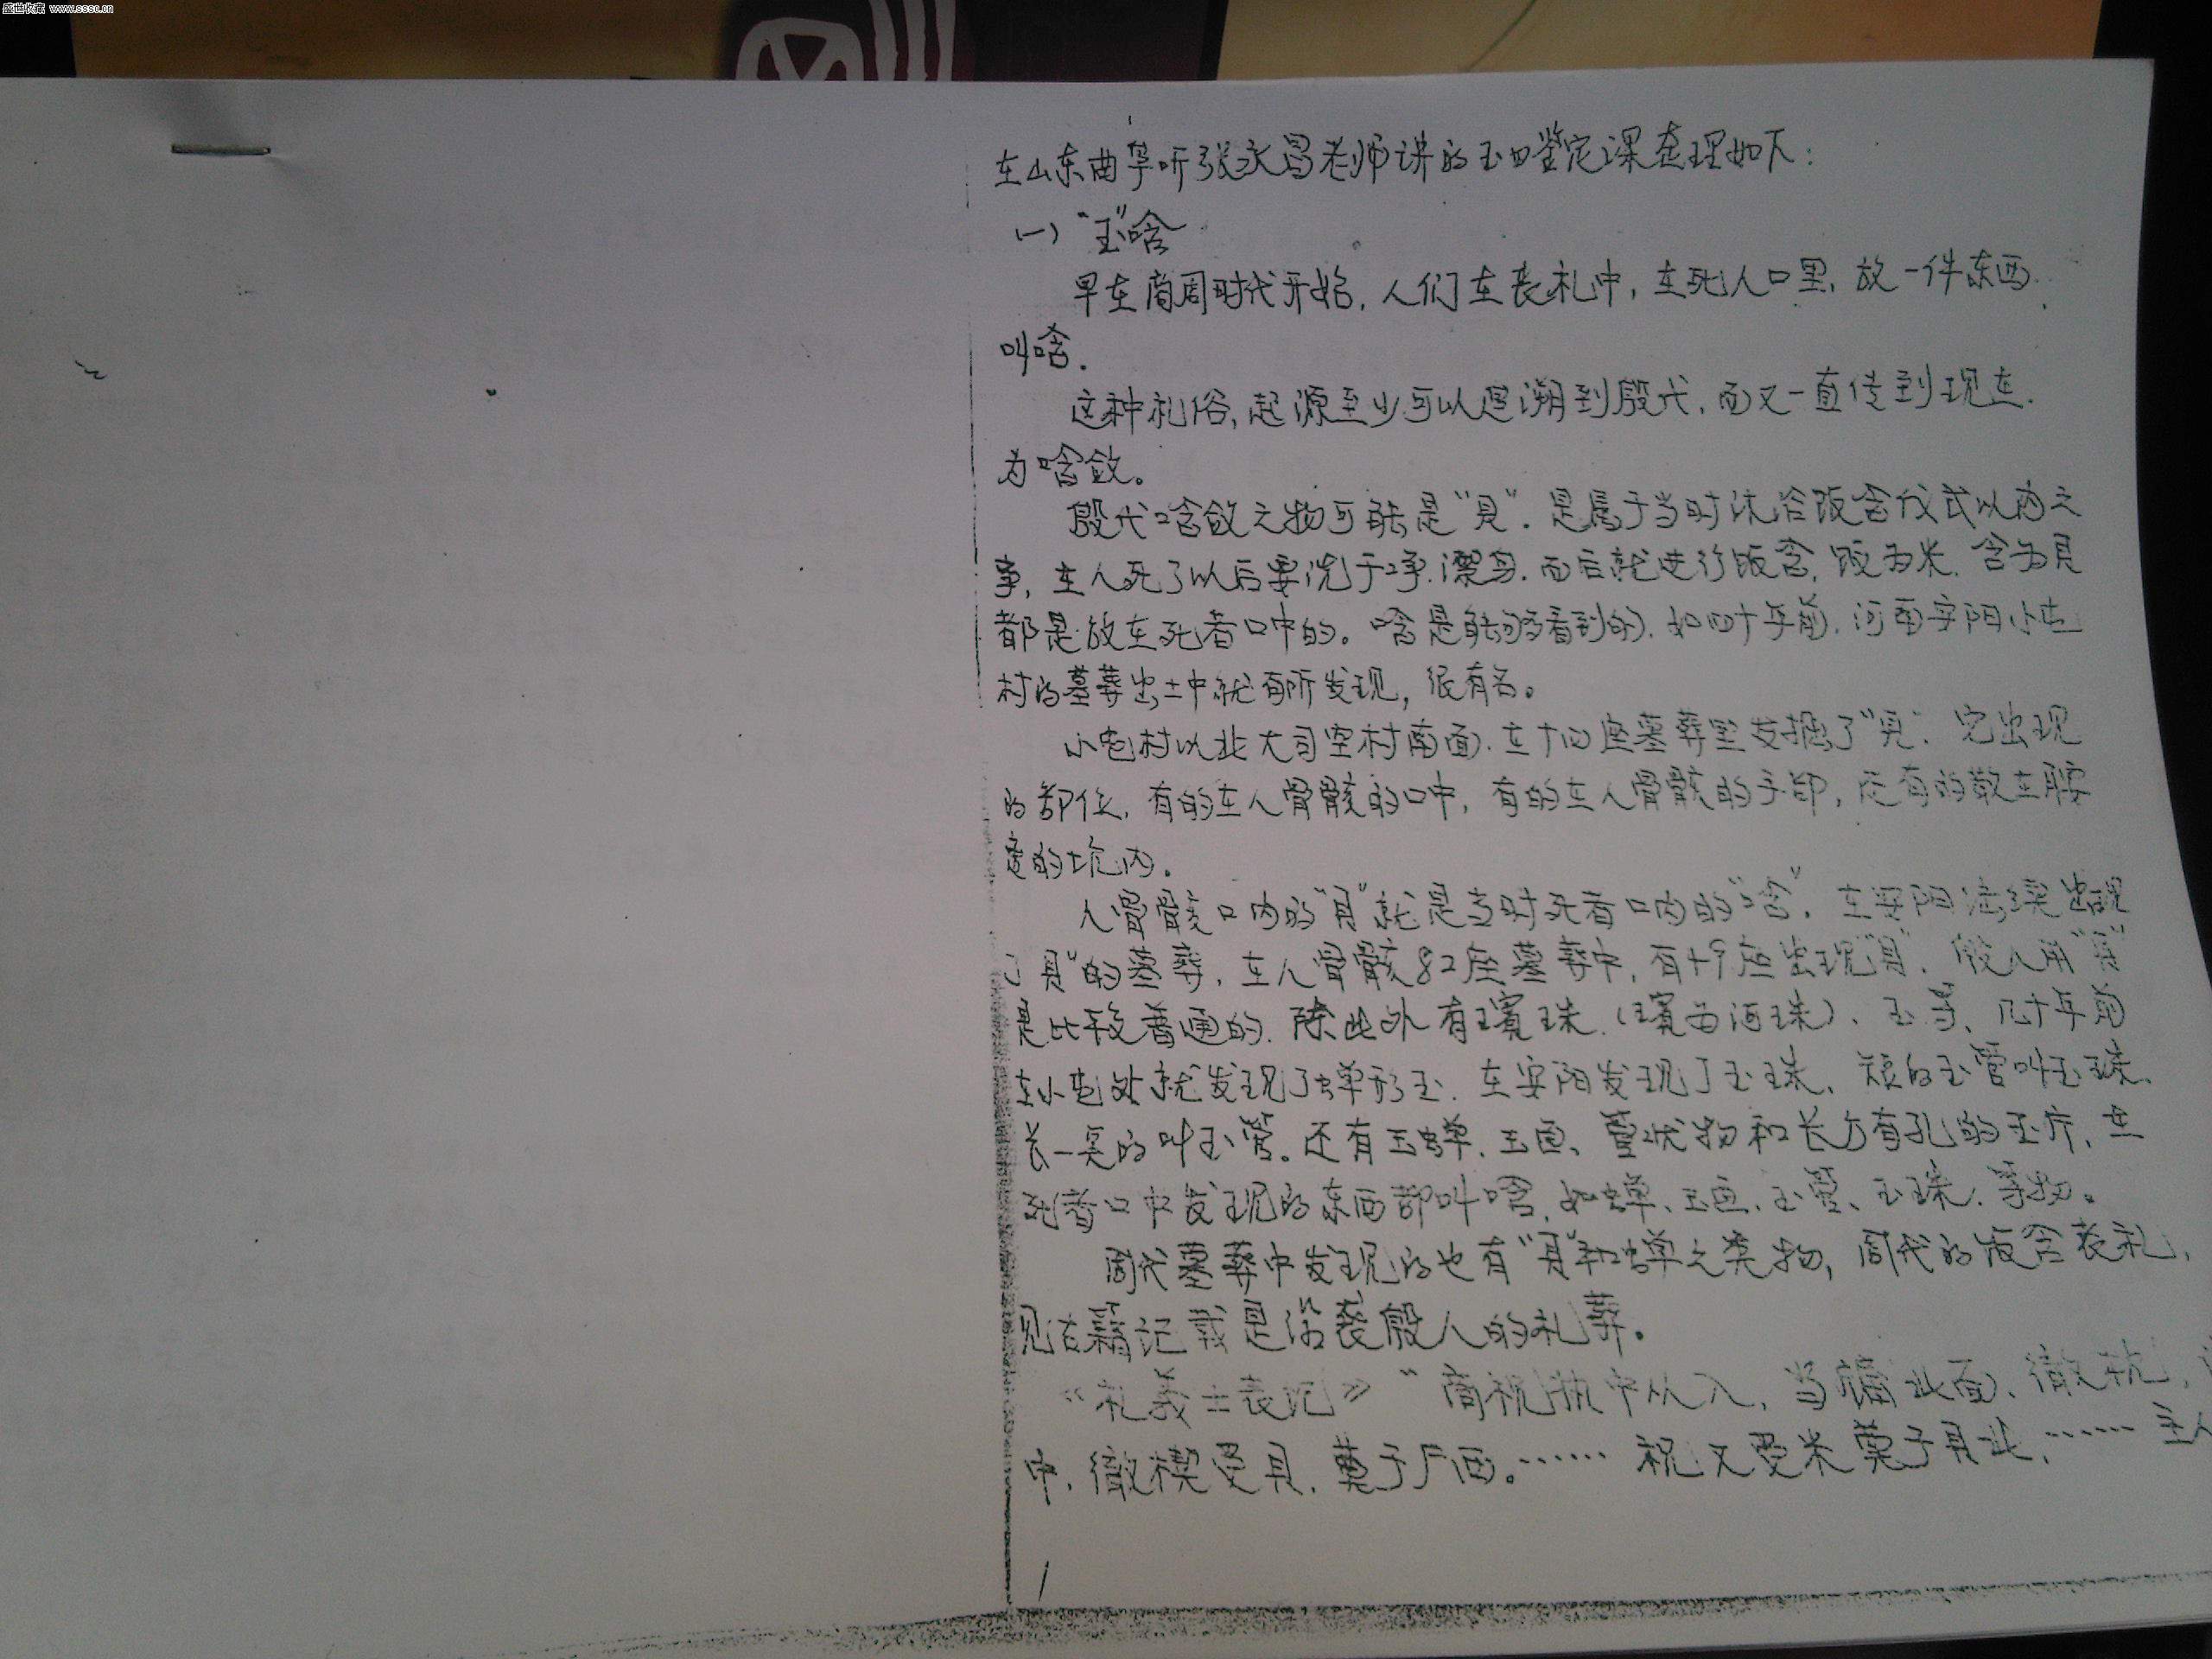 盛世收藏 www.sssc.cn
在山东曲阜听张永昌老师讲的玉口鉴定课整理如下：
(一)“玉”啥
早在商周时代开始，人们在丧礼中，在死人口里，放一件东西
叫啥．
这种礼俗，起源至少可以追溯到殷代，而又一直传到现在．
为啥敛。
殷代啥敛之物可能是“貝”．是属于当时沐浴饭含仪式以内之
事，在人死了以后要洗干净．而后就进行饭含，饭为米．含为貝
都是放在死者口中的。啥是能够看到的．如四十年前．河南安阳小屯
村的墓葬出土中就有所发现，很有名。
小屯村以北大司空村南面．在十四座墓葬里发掘了“貝”．它出现
的部位，有的在人骨骸的口中，有的在人骨骸的手部，还有的散在腰
的坑内．
人骨骸口内的“貝”就是当时死者口内的“啥”．在安阳陆续出现
了“貝”的墓葬．在人骨骸82座墓葬中，有十9座出现“貝”．殷人用“貝”
是比较普通的．除此外有璸珠．(璸为河珠)、玉等、几十年前
在小屯处就发现了蝉形玉．在安阳发现了玉珠、短的玉管叫玉珠、
长一点的叫玉管。还有玉蝉．玉鱼、状物和长方有孔的玉片．在
死者口中发现的东西都叫啥．如蝉、玉鱼．玉管、玉珠．等物。
周代墓葬中发现的也有“貝”和蝉之类物，周代的饭含丧礼，
见古籍记载是沿袭殷人的礼葬。
《礼義士喪记》“商祝执巾从入，当牖北面、徹枕，
巾．徹楔受貝．奠于尸西。……祝又受米奠于貝北．……主人
1